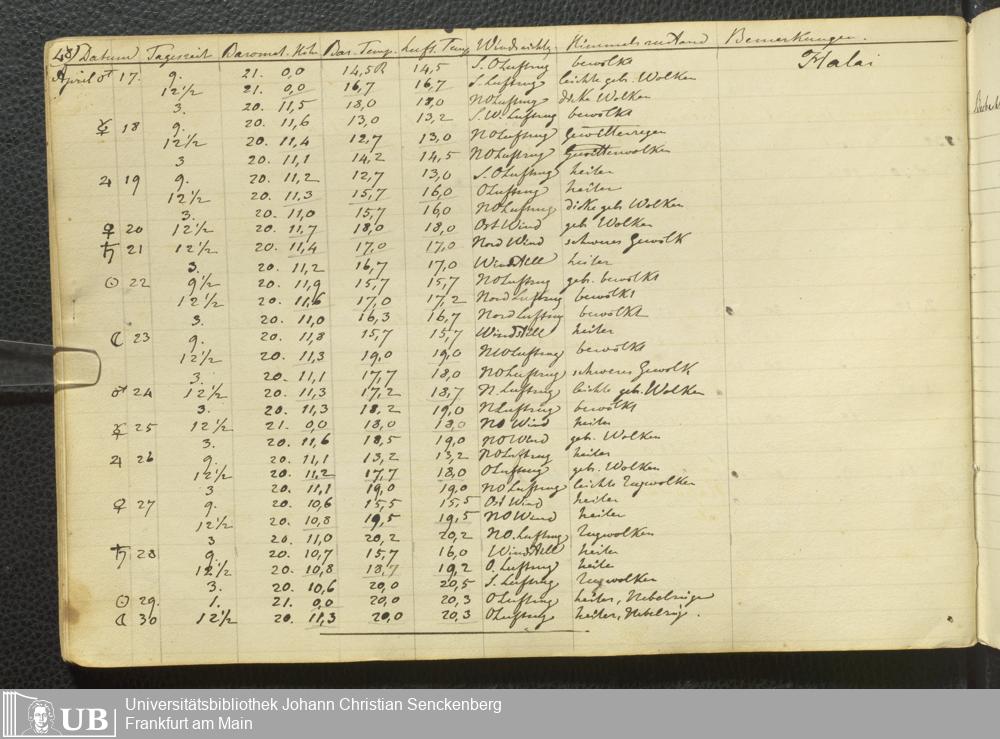 48) Datum Tageszeit Baromet. Höh. Bar. Temp. Luft. Temp. Windrichtg. Himmelszustand Bemerkungen.
April ♂ 17. 9. 21. 0,0 14,5 R 14,5 S.O Luftzug bewölkt Halai
12½ 21. 0,0 16,7 16,7 S. Luftzug leichte geb. Wolken
3. 20. 11,5 18,0 18,0 NO Luftzug dicke Wolken
☿ 18 9. 20. 11,6 13,0 13,2 S.W. Luftzug bewölkt
12½ 20. 11,4 12,7 13,0 NO Luftzug Gewitterregen
3 20. 11,1 14,2 14,5 NO Luftzug Gewitterwolken
♃ 19 9. 20. 11,2 12,7 13,0 S.O Luftzug heiter
12½ 20. 11,3 15,7 16,0 O Luftzug heiter
3. 20. 11,0 15,7 16,0 NO Luftzug dicke geb Wolken
♀ 20 12½ 20. 11,7 18,0 18,0 Ost Wind geb Wolken
♄ 21 12½ 20. 11,4 17,0 17,0 Nord Wind schweres Gewölk
3. 20. 11,2 16,7 17,0 Windstill heiter
☉ 22 9½ 20. 11,9 15,7 15,7 NO Luftzug geb. bewölkt
12½ 20. 11,6 17,0 17,2 Nord Luftzug bewölkt
3. 20. 11,0 16,3 16,7 Nord Luftzug bewölkt
☾ 23 9. 20. 11,8 15,7 15,7 Windstill heiter
12½ 20. 11,3 19,0 19,0 NO Luftzug bewölkt
3. 20. 11,1 17,7 18,0 NO Luftzug schweres Gewölk
♂ 24 12½ 20. 11,3 17,2 18,7 N. Luftzug leichte geb. Wolken
3. 20. 11,3 18,2 19,0 N Luftzug bewölkt
☿ 25 12½ 21. 0,0 18,0 18,0 NO Wind heiter
3. 20. 11,6 18,5 19,0 NO Wind geb. Wolken
♃ 26 9. 20. 11,1 13,2 13,2 NO Luftzug heiter
12½ 20. 11,2 17,7 18,0 O Luftzug geb. Wolken
3 20. 11,1 19,0 19,0 NO Luftzug leichte Zugwolken
♀ 27 9. 20. 10,6 15,5 15,5 Ost Wind heiter
12½ 20. 10,8 19,5 19,5 NO Wind heiter
3 20. 11,0 20,2 20,2 NO. Luftzug Zugwolken
♄ 28 9. 20. 10,7 15,7 16,0 Windstill heiter
12½ 20. 10,8 18,7 19,2 O. Luftzug heiter
3. 20. 10,6 20,0 20,5 S. Luftzug Zugwolken
☉ 29. 1. 21. 0,0 20,0 20,3 O Luftzug heiter, Nebelzüge
☾ 30 12½ 20. 11,3 20,0 20,3 O Luftzug heiter, Nebelzüg.
Universitätsbibliothek Johann Christian Senckenberg
Frankfurt am Main
UB